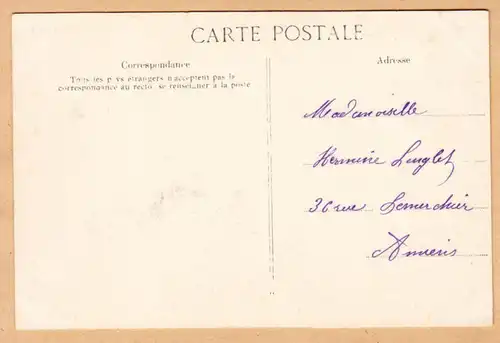 CARTE POSTALE
Correspondance
Tous les pays étrangers n'acceptent pas la
correspondance au recto se renseigner à la poste
Adresse
Mademoiselle
Hermine Langlet
36 rue Lemerchier
Amiens